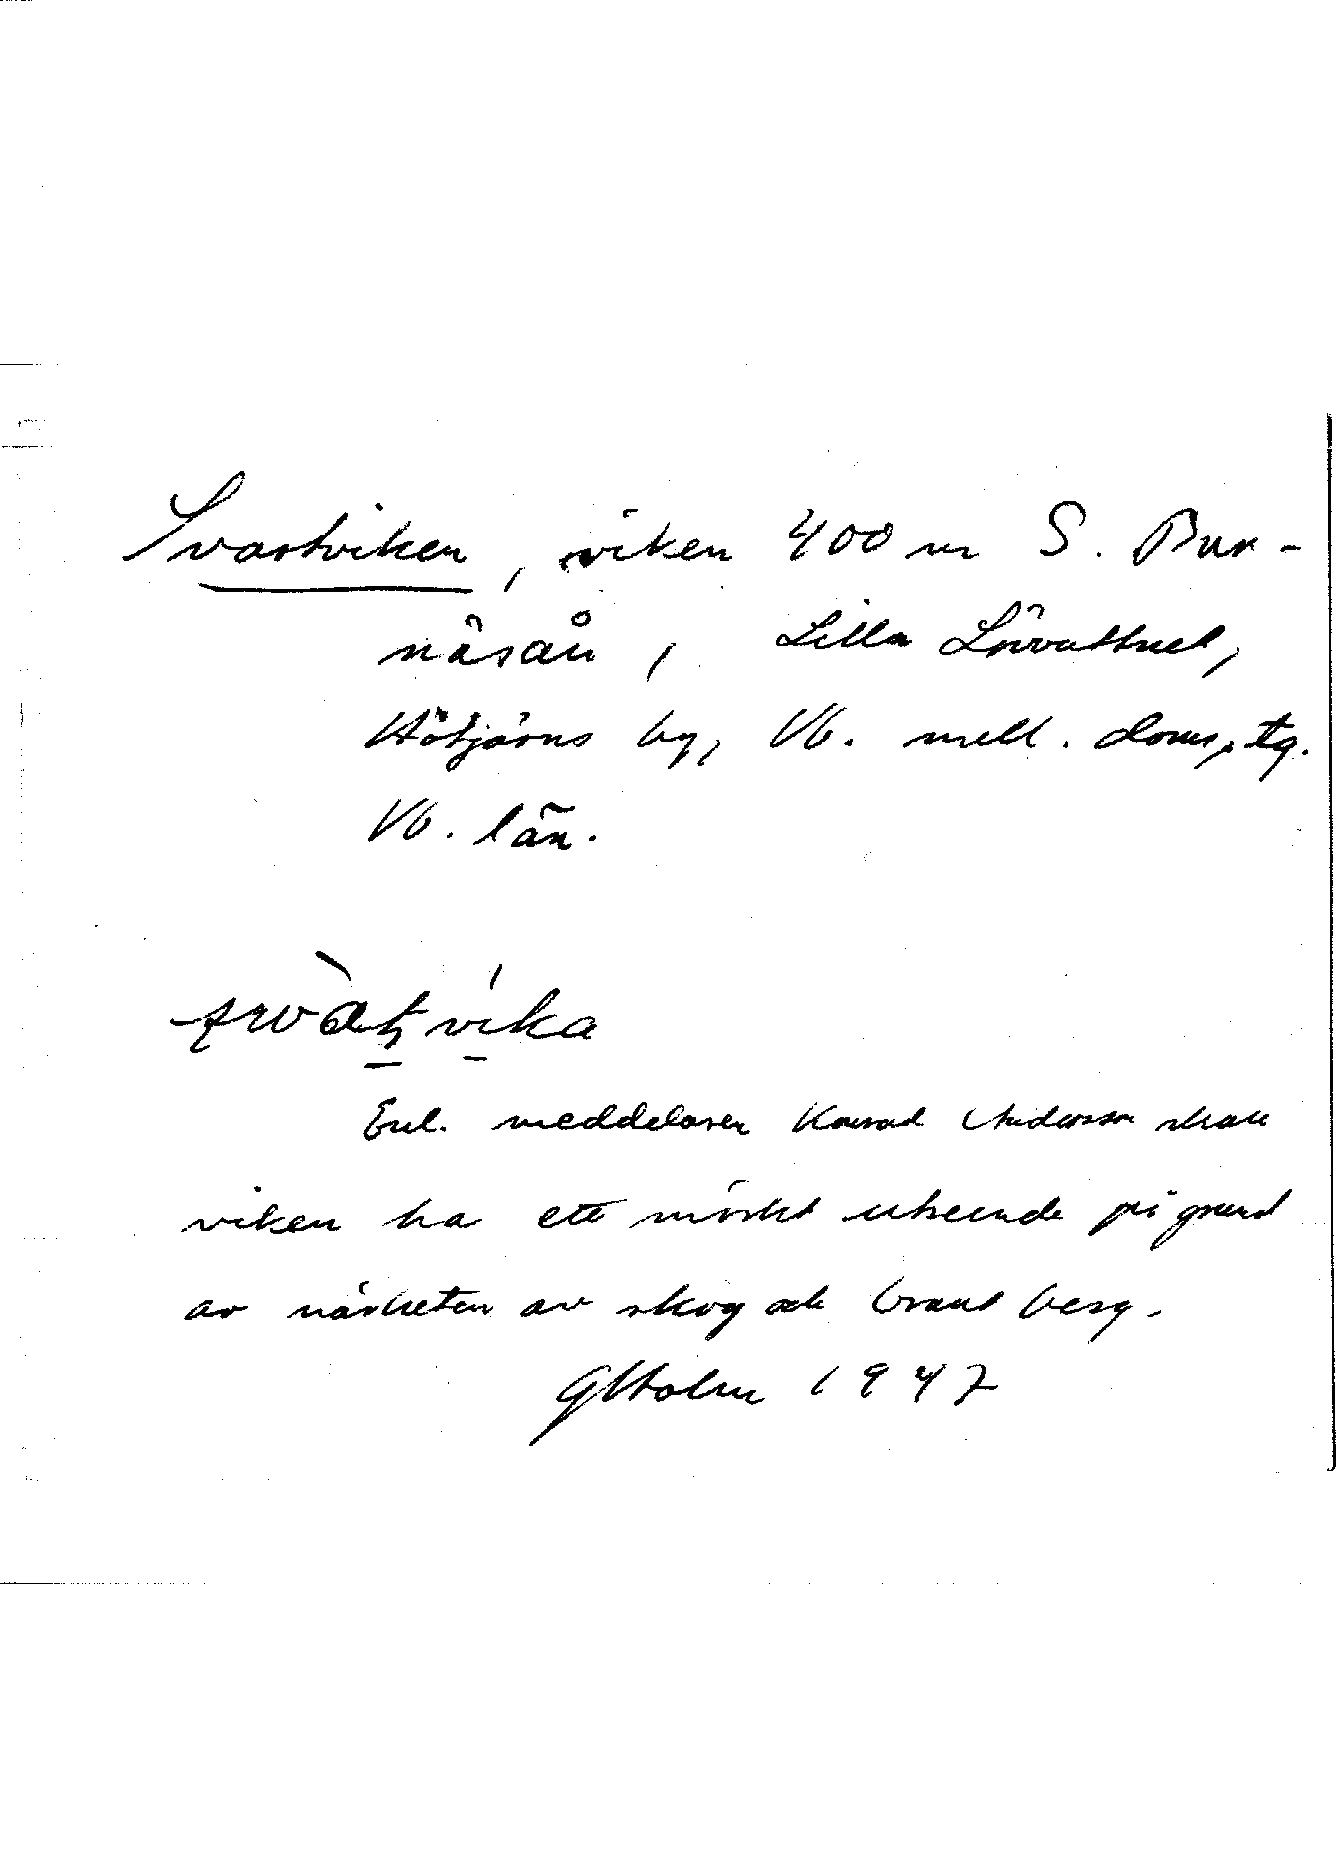 Svartviken, viken 400 m S. Bur-
näsån, Lilla Lövvattnet,
Hötjärns by, Vb. mell. doms. tg.
Vb. län.
enl. meddelaren Konrad Andersson skall
viken ha ett mörkt utseende på grund
av närheten av skog och brant berg.
GHolm 1947